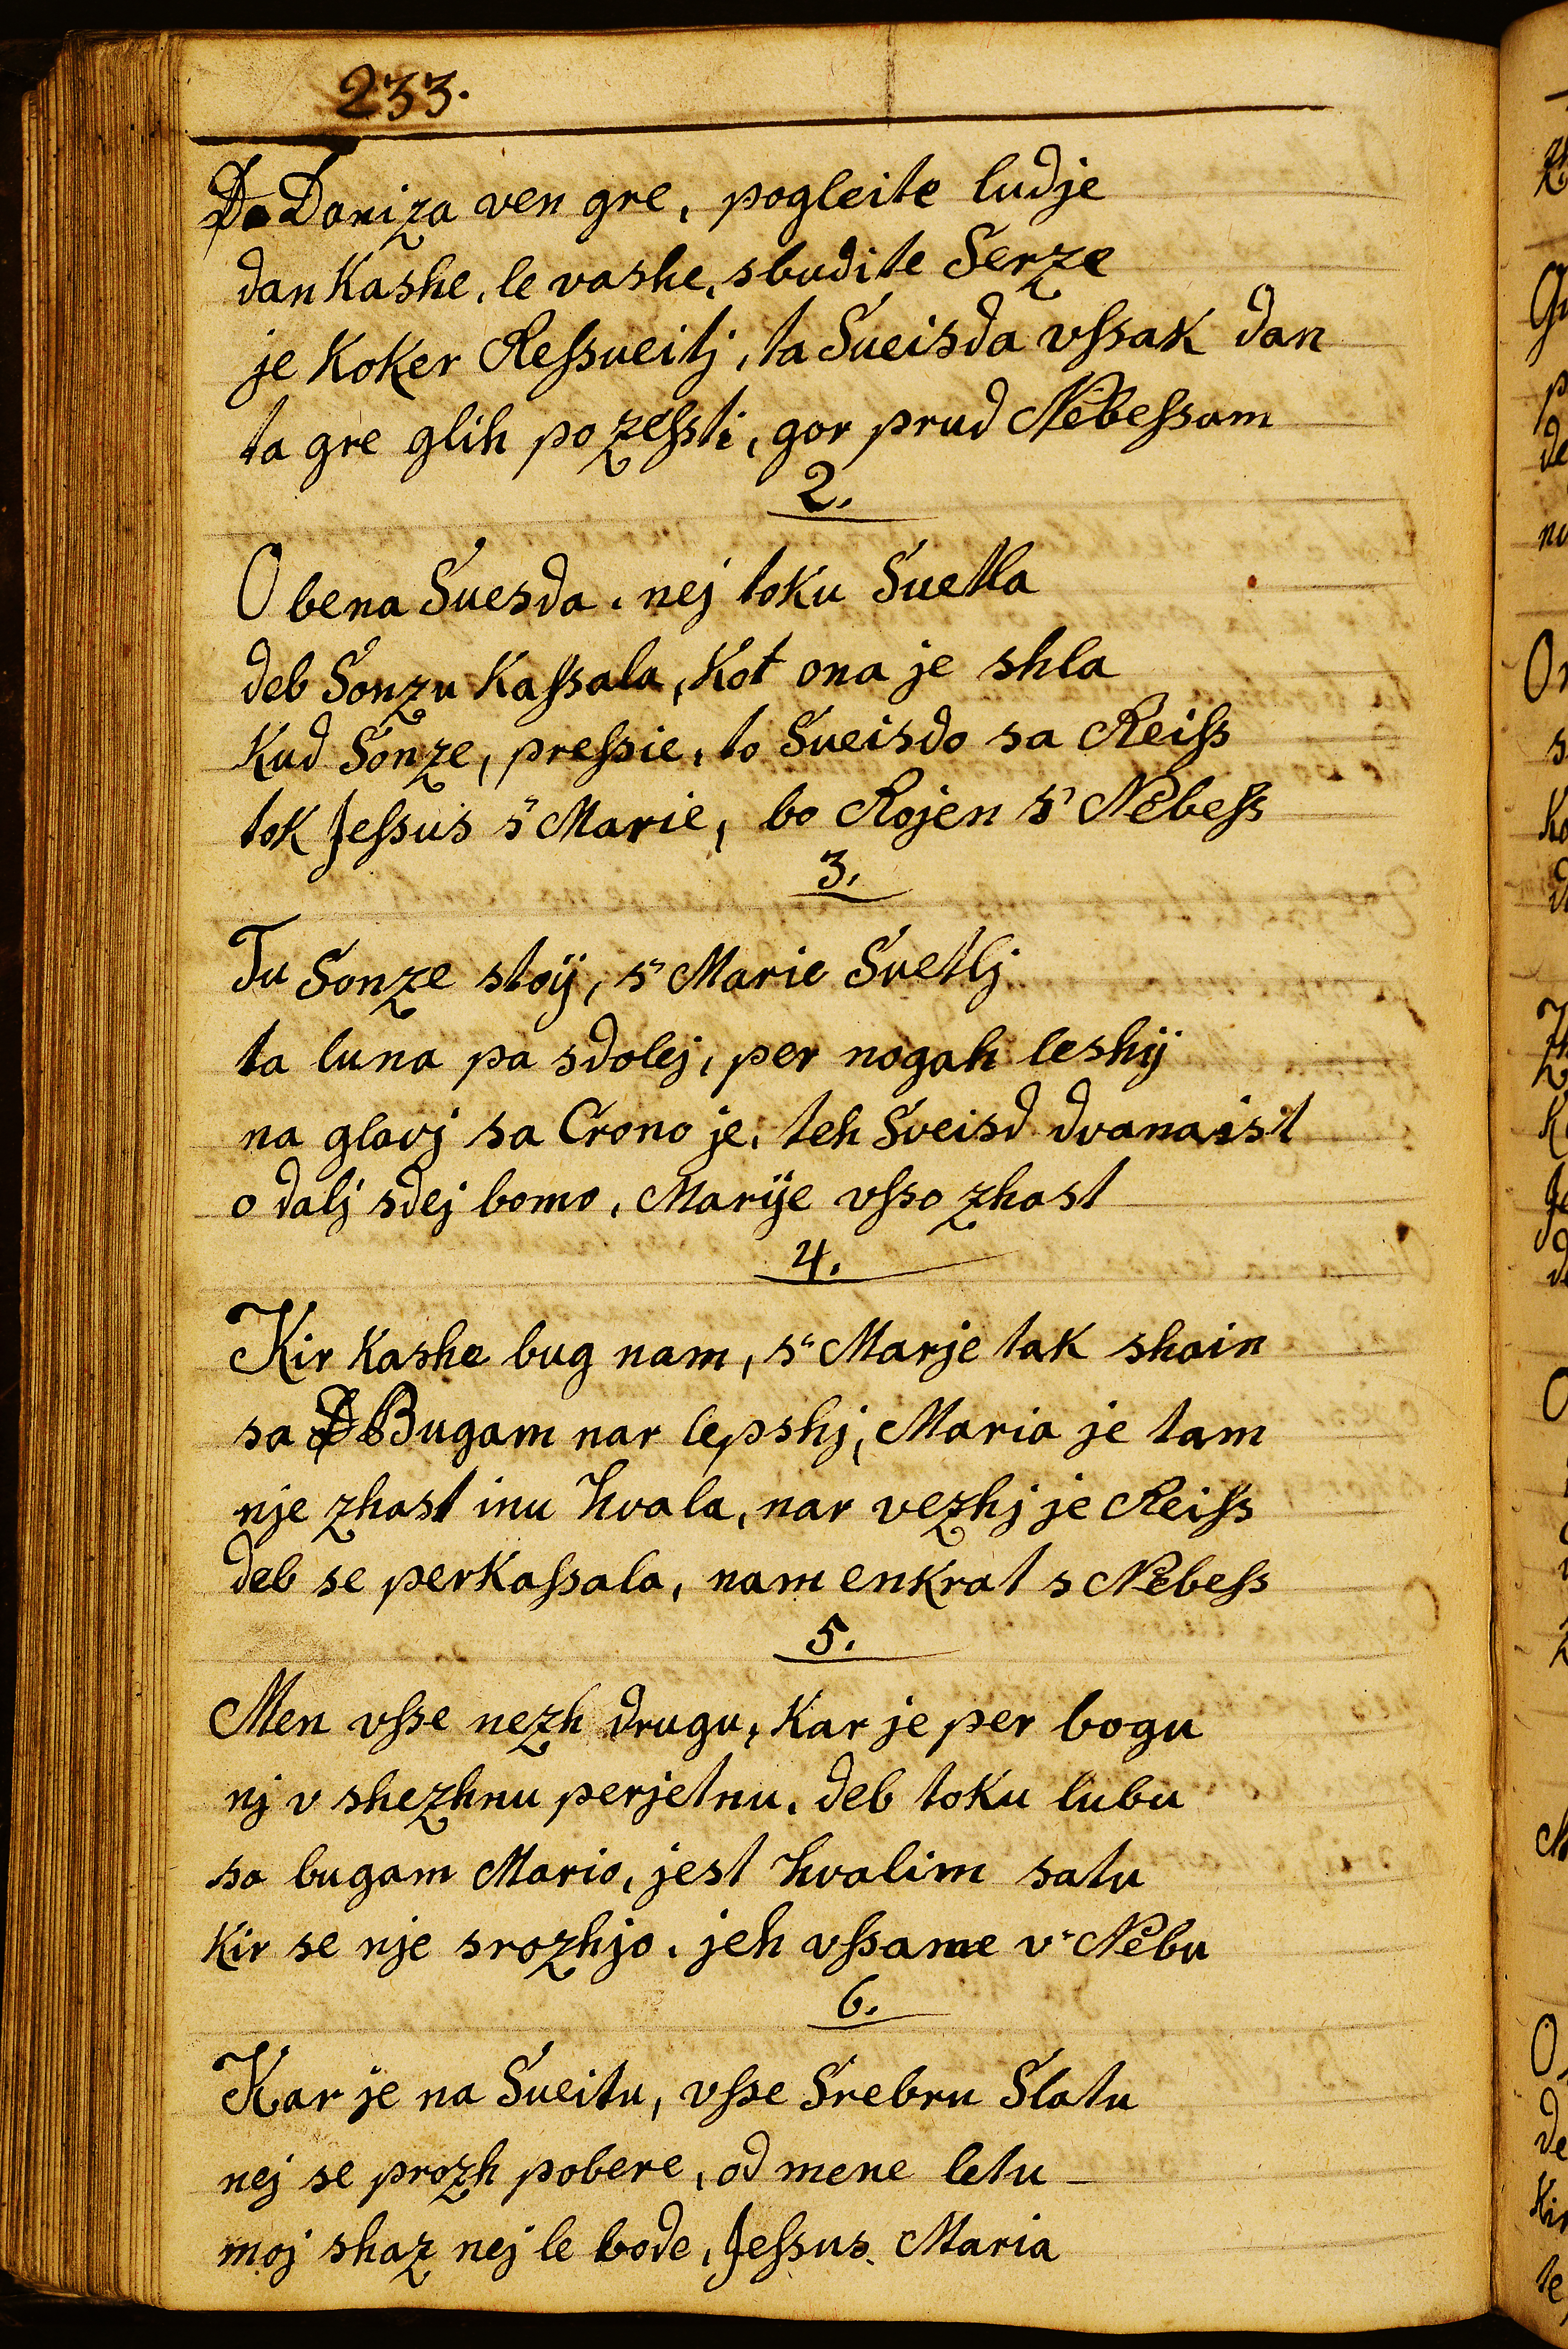 233.
Da Daniza ven gre, pogleite ludje
dan Kashe, le vashe, sbudite Serze
je Koker Reſsueitj, ta Sueisda vſsak dan
ta gre glih po zeſsti, gor prud Nebeſsam
2.
O bena Suesda, nej toku Suetla
deb Sonzu Kaſsala, Kot ona je shla
Kud Sonze, preſsie, to Sueisdo sa Reiſs
tok Jeſsus s" Marie, bo Rojen s" Nebeſs
3.
Tu Sonze stoÿ, s" Marie Suetlj
ta luna pa sdolej, per nogah leshÿ
na glavj sa Crono je, teh Sveisd dvanaist
o dalj sdej bomo, Marÿe vſso zhast
4.
Kir Kashe bug nam, s" Marje tak shain
sa Bugam nar lepshj, Maria je tam
nje zhast inu hvala, nar vezhj je Reiſs
deb se perKaſsala, nam enkrat s Nebeſs
5.
Men vſse nezh drugu, Kar je per bogu
nj v shezhnu perjetnu, deb toku lubu
sa bugam Mario, jest hvalim satu
Kir se nje srozhjo, jeh vſsame v" Nebu
6.
Kar je na Sueitu, vſse Srebru Slatu
nej se prozh pobere, od mene letu
moj shaz nej le bode, Jeſsus Maria